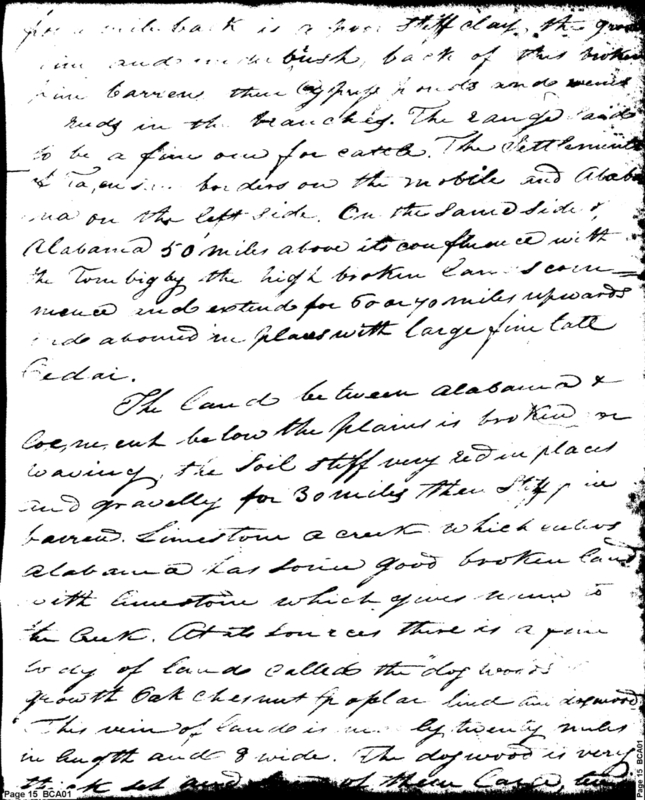 for a mile back is a poor stiff clay, the grow
pine and underbush, back of this broken
pine barren then Cypress ponds and veins
reeds in the branches. The range said
to be a fine one for cattle. The Settlement
of Tawensaw borders on the mobile and Alaba
ma on the left side. On the same side of
Alabama 50 miles above its confluence with
the Tombigby the high broken Lands com=
mence and extend for 60 or 70 miles upwards
and abound in places with large fine tall
Cedar.
The land between Alabama &
Coenecuh below the plains is broken or
waving, the Soil stiff very red in places
and gravelly for 30 miles then stiff pine
barren. Limestone a creek which enters
Alabama has some good broken land
with limestone which gives name to
the Creek. At its sources there is a fine
body of lands called the dog woods
growth Oak Chesnut poplar and dogwood
This vein of lands is nearly twenty miles
in length and 8 wide. The dogwood is very
thick set and of them Large
Page 15 BCA01
Page 15 BCA01